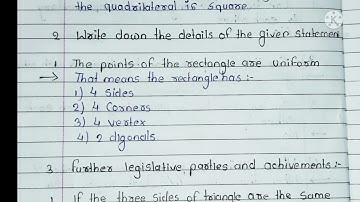 the, quadrilateral is square
2 Write down the details of the given statement
1 The points of the rectangle are uniform
→ That means the rectangle has :-
1) 4 Sides
2) 4 Corners
3) 4 vertex
4) 2 digonals
3 further legislative parties and achivements :-
1 If the three sides of triangle are the same